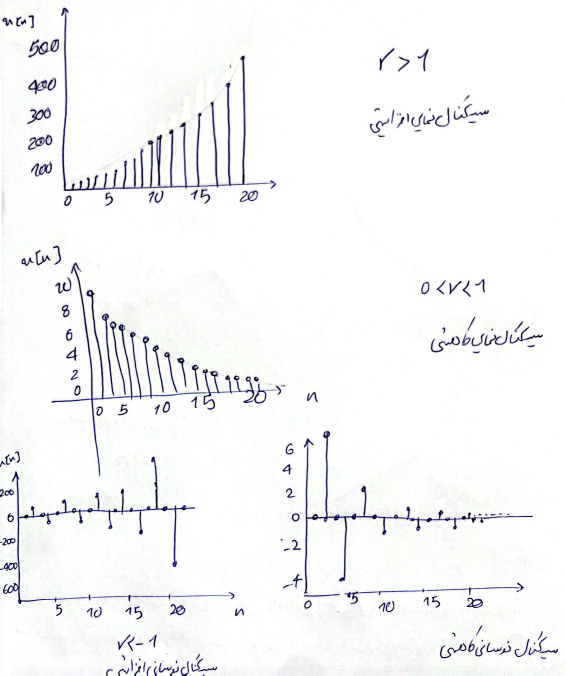 x[n]
500
400
300
200
100
0 5 10 15 20
r > 1
سیگنال نمایی افزایشی
x[n]
10
8
6
4
2
0
0 5 10 15 20
n
0 < r < 1
سیگنال نمایی کاهشی
x[n]
200
0
-200
-400
600
5 10 15 20
n
r < -1
سیگنال نوسانی افزایشی
6
4
2
0
-2
-4
0 5 10 15 20
سیگنال نوسانی کاهشی